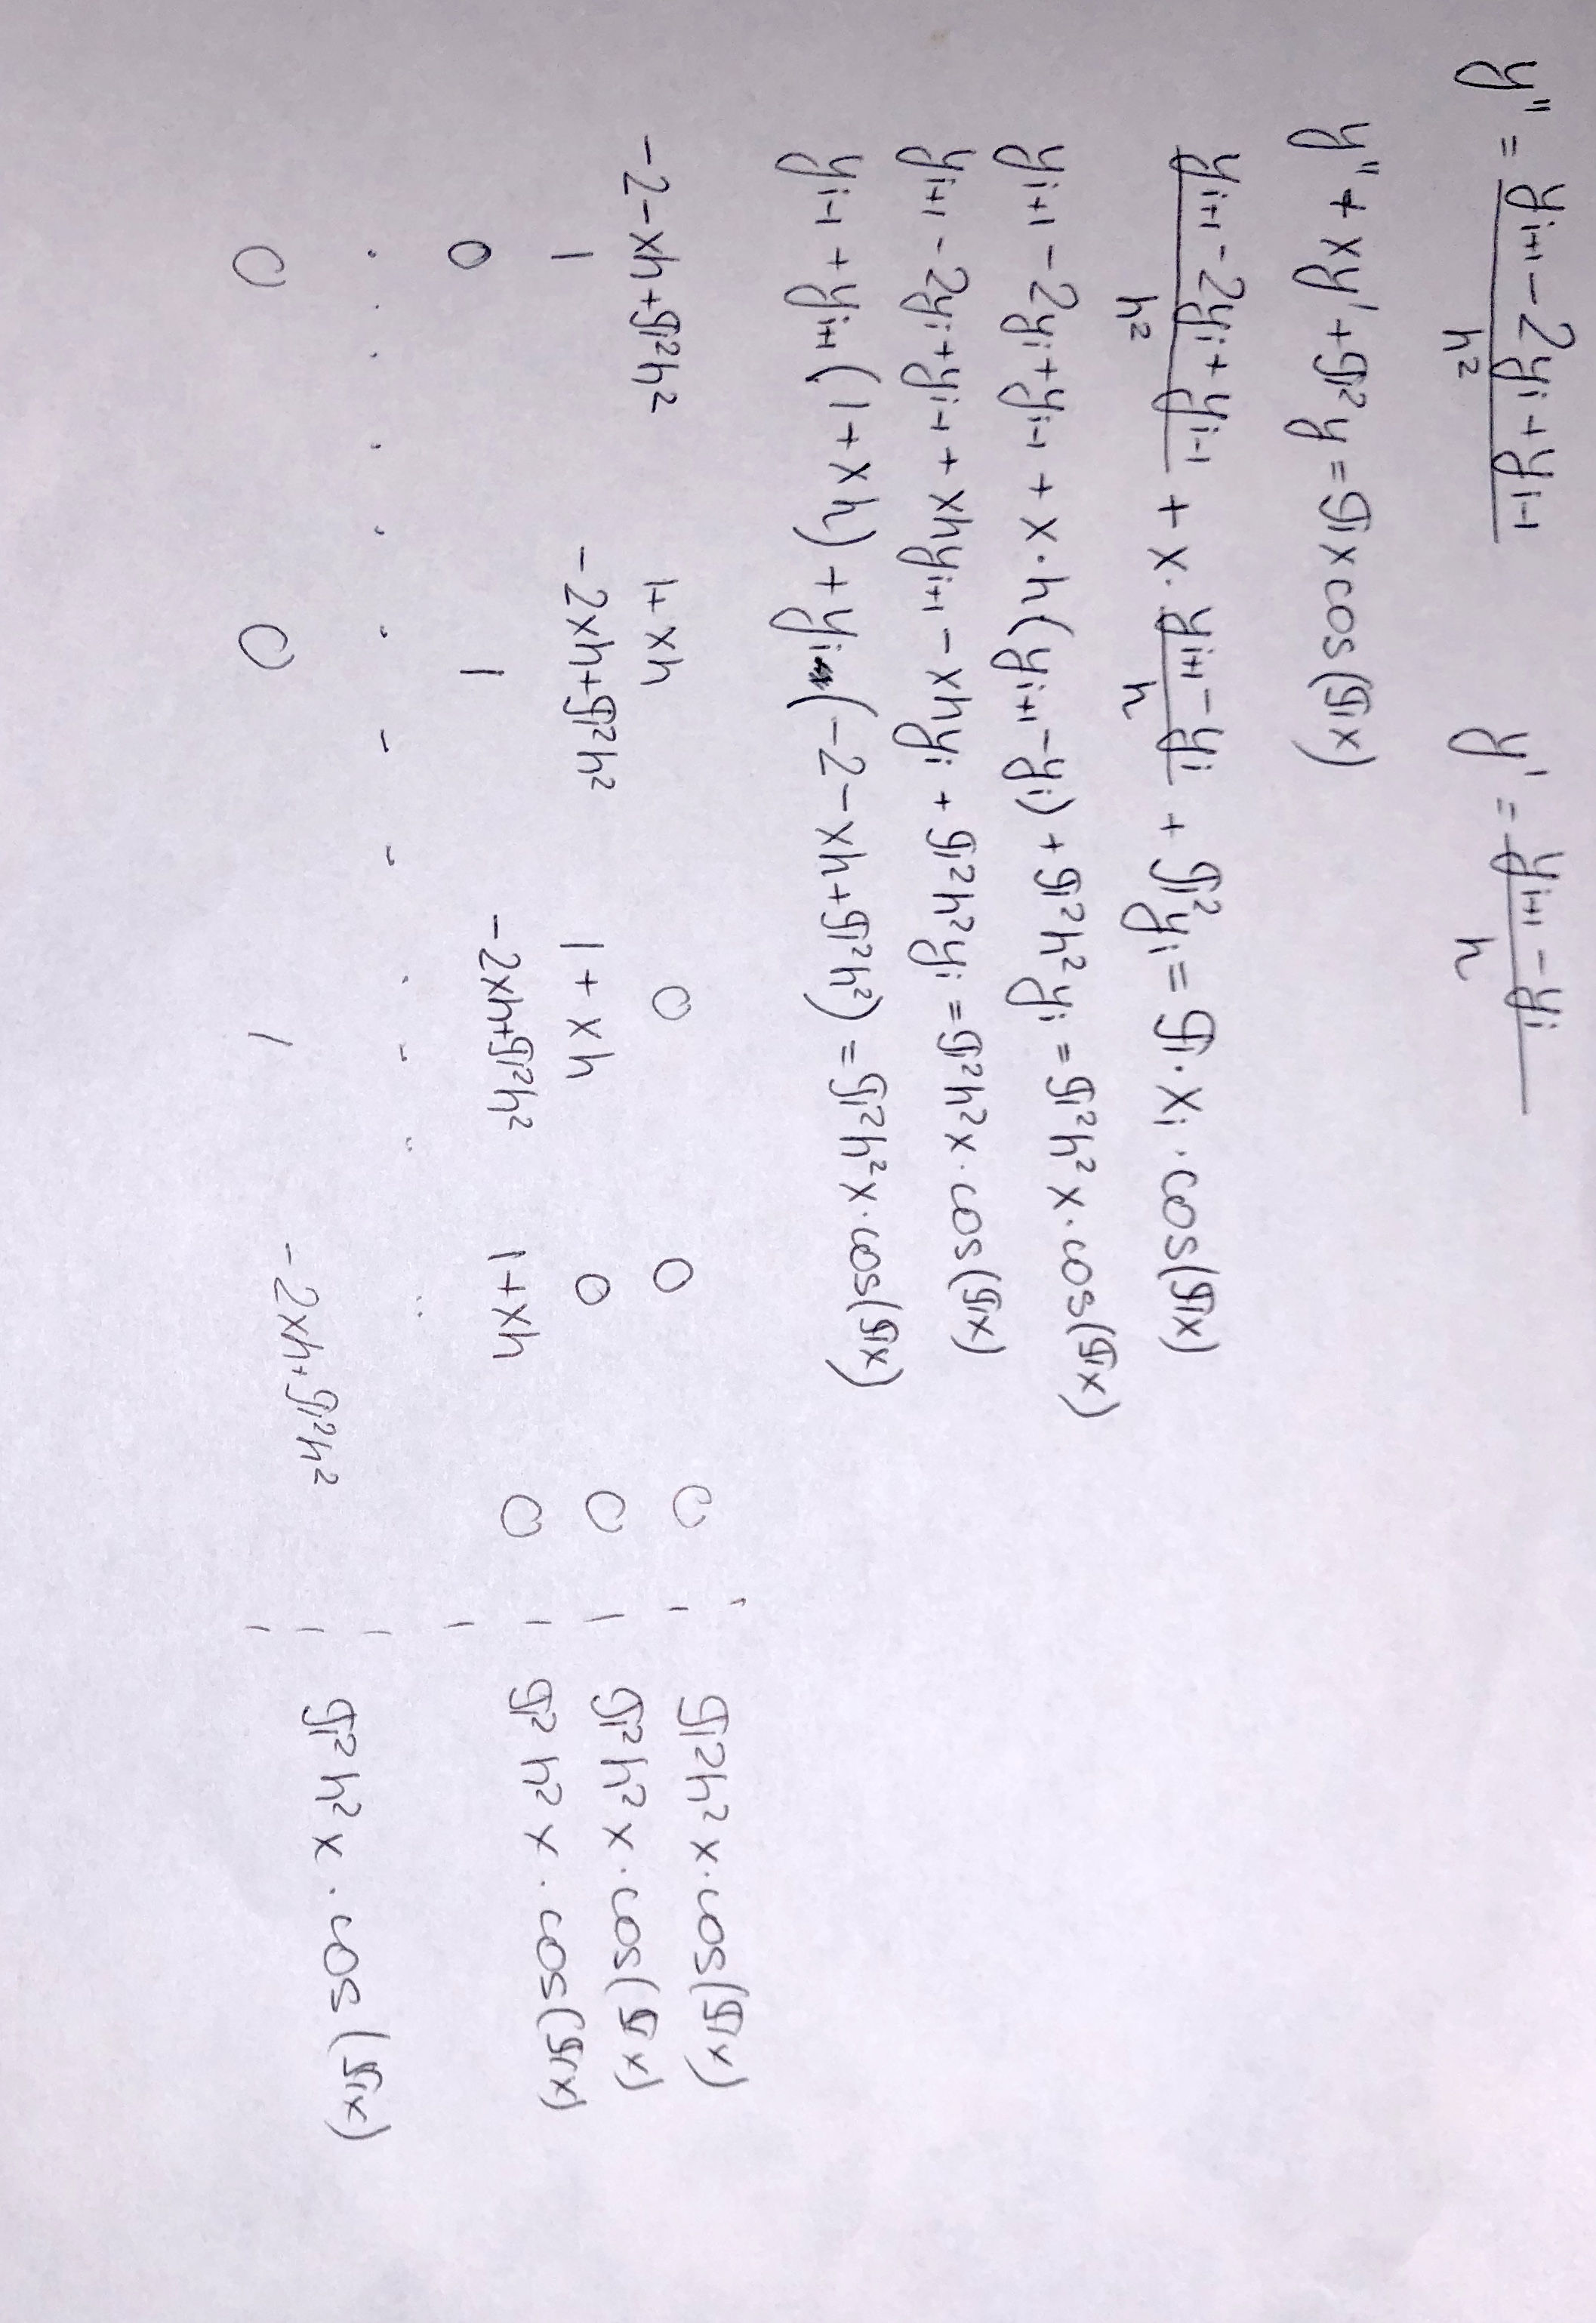 y'' = (y_{i+1} - 2y_i + y_{i-1}) / h²    y' = (y_{i+1} - y_i) / h
y'' + xy' + π²y = πx cos(πx)
(y_{i+1} - 2y_i + y_{i-1}) / h² + x · (y_{i+1} - y_i) / h + π²y_i = π · x_i · cos(πx)
y_{i+1} - 2y_i + y_{i-1} + x·h(y_{i+1} - y_i) + π²h²y_i = π²h²x · cos(πx)
y_{i+1} - 2y_i + y_{i-1} + xhy_{i+1} - xhy_i + π²h²y_i = π²h²x · cos(πx)
y_{i-1} + y_{i+1}(1 + xh) + y_i(-2 - xh + π²h²) = π²h²x · cos(πx)
-2-xh+π²h²    1+xh    0    0    0    |    π²h²x · cos(πx)
1    -2xh+π²h²    1+xh    0    0    |    π²h²x · cos(πx)
0    1    -2xh+π²h²    1+xh    0    |    π²h²x · cos(πx)
. . . . . . . . . . . .
0    0    1    -2xh+π²h²    |    π²h²x · cos(πx)